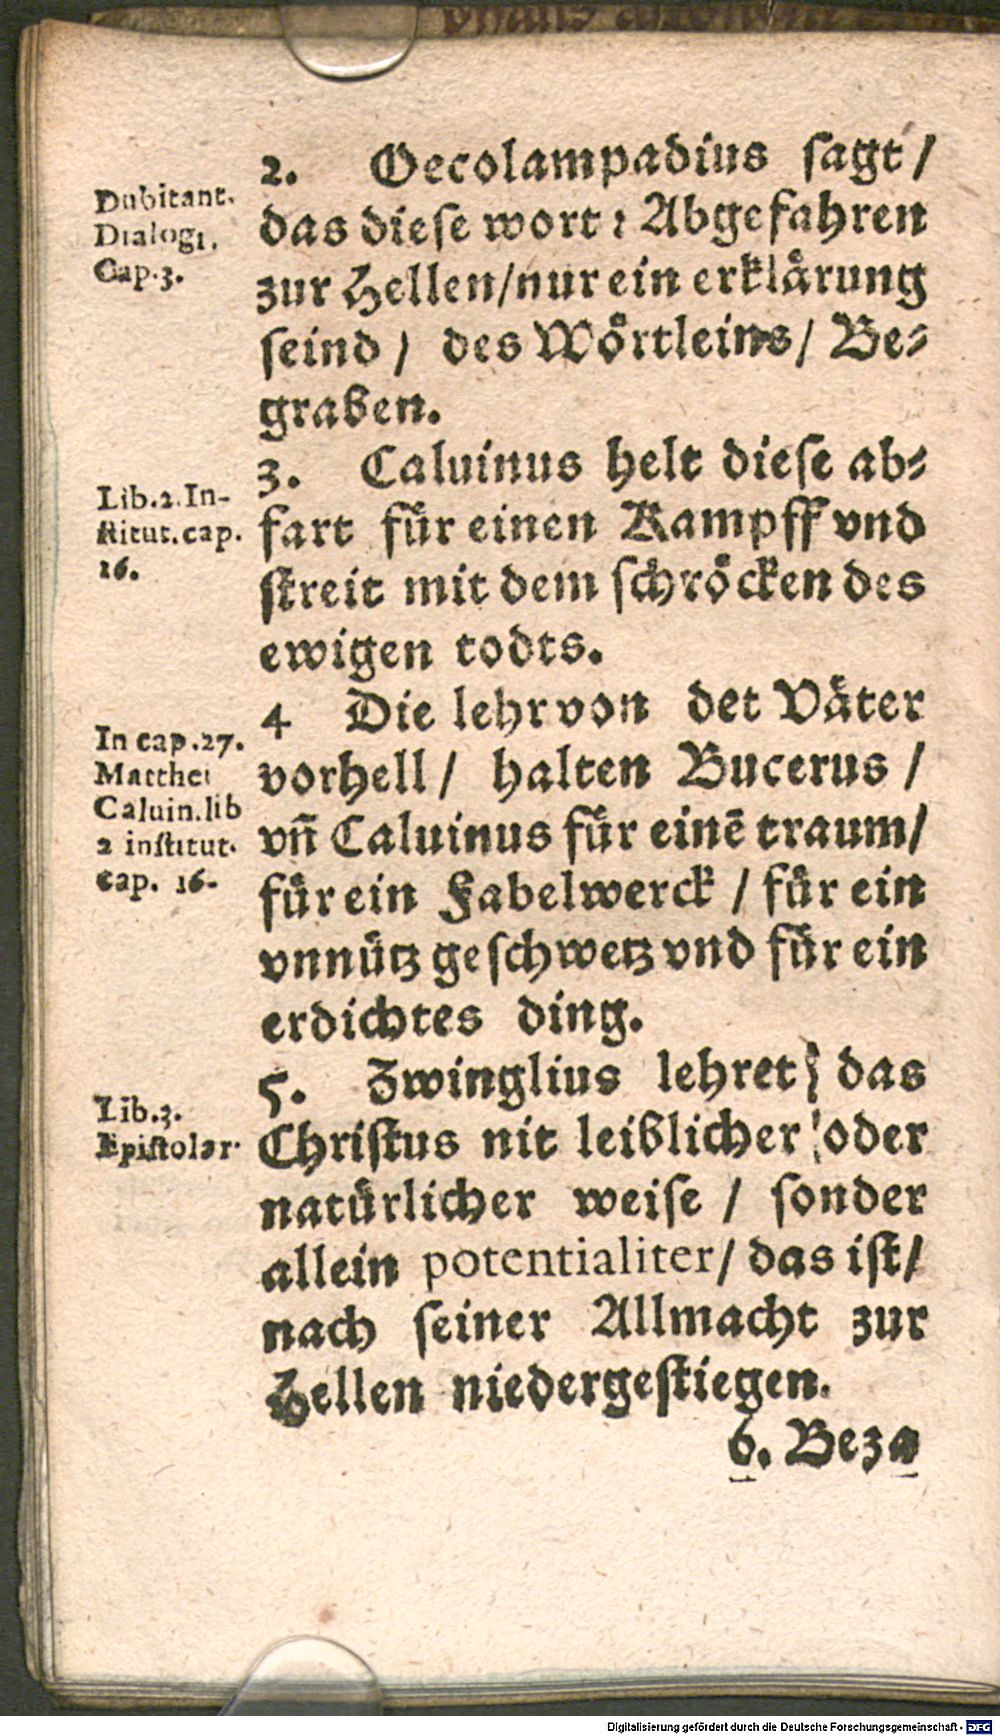 2. Oecolampadius sagt /
das diese wort: Abgefahren
zur Hellen/nur ein erklårung
seind / des Wôrtleins/ Be-
graben.
Dubitant.
Dialogi.
Cap.3.
3. Caluinus helt diese ab-
fart fůr einen Kampff vnd
streit mit dem schrôcken des
ewigen todts.
Lib.2.In-
stitut.cap.
16.
4 Die lehr von det Våter
vorhell / halten Bucerus /
vñ Caluinus fůr einē traum/
fůr ein Fabelwerck / fůr ein
vnnůtz geschwetz vnd fůr ein
erdichtes ding.
In cap.27.
Matthei
Caluin.lib
2 institut.
cap. 16.
5. Zwinglius lehret / das
Christus nit leiblicher / oder
natůrlicher weise / sonder
allein potentialiter/ das ist/
nach seiner Allmacht zur
Hellen niedergestiegen.
Lib.3.
Epistolar.
6. Beza
Digitalisierung gefördert durch die Deutsche Forschungsgemeinschaft - DFG